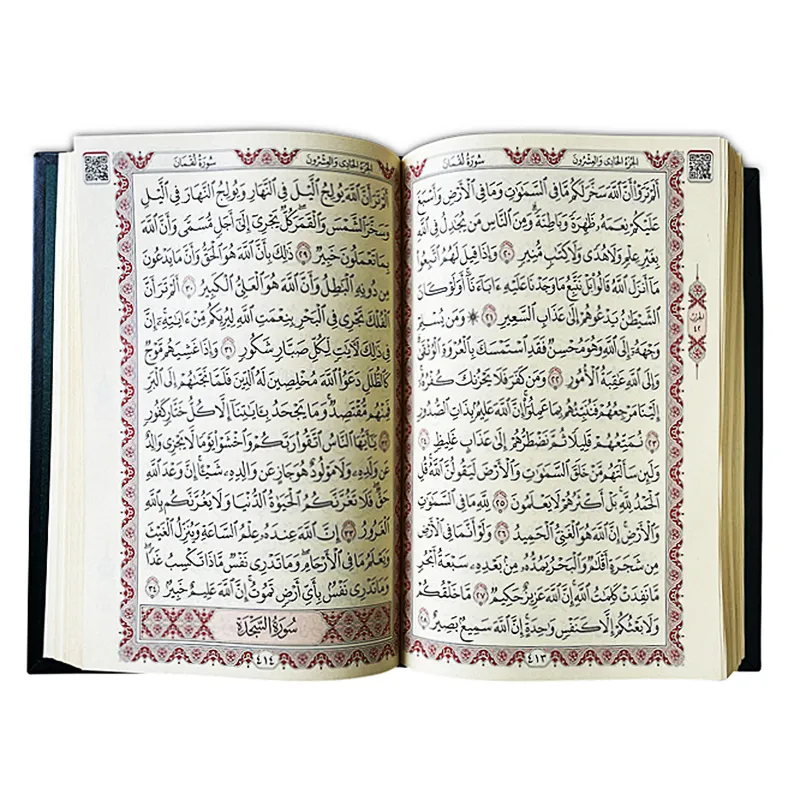 سُورَةُ لُقْمَانَ
الجُزْءُ الحَادِي وَالعِشْرُونَ
أَلَمْ تَرَوْا۟ أَنَّ ٱللَّهَ سَخَّرَ لَكُم مَّا فِى ٱلسَّمَٰوَٰتِ وَمَا فِى ٱلْأَرْضِ وَأَسْبَغَ
عَلَيْكُمْ نِعَمَهُۥ ظَٰهِرَةً وَبَاطِنَةً ۗ وَمِنَ ٱلنَّاسِ مَن يُجَٰدِلُ فِى ٱللَّهِ
بِغَيْرِ عِلْمٍ وَلَا هُدًى وَلَا كِتَٰبٍ مُّنِيرٍ ٢٠ وَإِذَا قِيلَ لَهُمُ ٱتَّبِعُوا۟
مَآ أَنزَلَ ٱللَّهُ قَالُوا۟ بَلْ نَتَّبِعُ مَا وَجَدْنَا عَلَيْهِ ءَابَآءَنَآ ۚ أَوَلَوْ كَانَ
ٱلشَّيْطَٰنُ يَدْعُوهُمْ إِلَىٰ عَذَابِ ٱلسَّعِيرِ ٢١ ۞ وَمَن يُسْلِمْ
وَجْهَهُۥٓ إِلَى ٱللَّهِ وَهُوَ مُحْسِنٌ فَقَدِ ٱسْتَمْسَكَ بِٱلْعُرْوَةِ ٱلْوُثْقَىٰ ۗ
وَإِلَى ٱللَّهِ عَٰقِبَةُ ٱلْأُمُورِ ٢٢ وَمَن كَفَرَ فَلَا يَحْزُنكَ كُفْرُهُۥٓ ۚ
إِلَيْنَا مَرْجِعُهُمْ فَنُنَبِّئُهُم بِمَا عَمِلُوٓا۟ ۚ إِنَّ ٱللَّهَ عَلِيمٌۢ بِذَاتِ ٱلصُّدُورِ
٢٣ نُمَتِّعُهُمْ قَلِيلًا ثُمَّ نَضْطَرُّهُمْ إِلَىٰ عَذَابٍ غَلِيظٍ ٢٤
وَلَئِن سَأَلْتَهُم مَّنْ خَلَقَ ٱلسَّمَٰوَٰتِ وَٱلْأَرْضَ لَيَقُولُنَّ ٱللَّهُ ۚ قُلِ
ٱلْحَمْدُ لِلَّهِ ۚ بَلْ أَكْثَرُهُمْ لَا يَعْلَمُونَ ٢٥ لِلَّهِ مَا فِى ٱلسَّمَٰوَٰتِ
وَٱلْأَرْضِ ۚ إِنَّ ٱللَّهَ هُوَ ٱلْغَنِىُّ ٱلْحَمِيدُ ٢٦ وَلَوْ أَنَّمَا فِى ٱلْأَرْضِ
مِن شَجَرَةٍ أَقْلَٰمٌ وَٱلْبَحْرُ يَمُدُّهُۥ مِنۢ بَعْدِهِۦ سَبْعَةُ أَبْحُرٍ
مَّا نَفِدَتْ كَلِمَٰتُ ٱللَّهِ ۗ إِنَّ ٱللَّهَ عَزِيزٌ حَكِيمٌ ٢٧ مَّا خَلْقُكُمْ
وَلَا بَعْثُكُمْ إِلَّا كَنَفْسٍ وَٰحِدَةٍ ۗ إِنَّ ٱللَّهَ سَمِيعٌۢ بَصِيرٌ ٢٨
الحزب
٤٢
٤١٣
سُورَةُ لُقْمَانَ
الجُزْءُ الحَادِي وَالعِشْرُونَ
أَلَمْ تَرَ أَنَّ ٱللَّهَ يُولِجُ ٱلَّيْلَ فِى ٱلنَّهَارِ وَيُولِجُ ٱلنَّهَارَ فِى ٱلَّيْلِ
وَسَخَّرَ ٱلشَّمْسَ وَٱلْقَمَرَ كُلٌّ يَجْرِىٓ إِلَىٰٓ أَجَلٍ مُّسَمًّى وَأَنَّ ٱللَّهَ
بِمَا تَعْمَلُونَ خَبِيرٌ ٢٩ ذَٰلِكَ بِأَنَّ ٱللَّهَ هُوَ ٱلْحَقُّ وَأَنَّ مَا يَدْعُونَ
مِن دُونِهِ ٱلْبَٰطِلُ وَأَنَّ ٱللَّهَ هُوَ ٱلْعَلِىُّ ٱلْكَبِيرُ ٣٠ أَلَمْ تَرَ أَنَّ
ٱلْفُلْكَ تَجْرِى فِى ٱلْبَحْرِ بِنِعْمَتِ ٱللَّهِ لِيُرِيَكُم مِّنْ ءَايَٰتِهِۦٓ ۚ إِنَّ
فِى ذَٰلِكَ لَءَايَٰتٍ لِّكُلِّ صَبَّارٍ شَكُورٍ ٣١ وَإِذَا غَشِيَهُم مَّوْجٌ
كَٱلظُّلَلِ دَعَوُا۟ ٱللَّهَ مُخْلِصِينَ لَهُ ٱلدِّينَ فَلَمَّا نَجَّىٰهُمْ إِلَى ٱلْبَرِّ
فَمِنْهُم مُّقْتَصِدٌ ۚ وَمَا يَجْحَدُ بِـَٔايَٰتِنَآ إِلَّا كُلُّ خَتَّارٍ كَفُورٍ
٣٢ يَٰٓأَيُّهَا ٱلنَّاسُ ٱتَّقُوا۟ رَبَّكُمْ وَٱخْشَوْا۟ يَوْمًا لَّا يَجْزِى وَالِدٌ
عَن وَلَدِهِۦ وَلَا مَوْلُودٌ هُوَ جَازٍ عَن وَالِدِهِۦ شَيْـًٔا ۚ إِنَّ وَعْدَ ٱللَّهِ
حَقٌّ ۖ فَلَا تَغُرَّنَّكُمُ ٱلْحَيَوٰةُ ٱلدُّنْيَا وَلَا يَغُرَّنَّكُم بِٱللَّهِ
ٱلْغَرُورُ ٣٣ إِنَّ ٱللَّهَ عِندَهُۥ عِلْمُ ٱلسَّاعَةِ وَيُنَزِّلُ ٱلْغَيْثَ
وَيَعْلَمُ مَا فِى ٱلْأَرْحَامِ ۖ وَمَا تَدْرِى نَفْسٌ مَّاذَا تَكْسِبُ غَدًا ۖ
وَمَا تَدْرِى نَفْسٌۢ بِأَىِّ أَرْضٍ تَمُوتُ ۚ إِنَّ ٱللَّهَ عَلِيمٌ خَبِيرٌۢ ٣٤
سُورَةُ السَّجْدَةِ
٤١٤